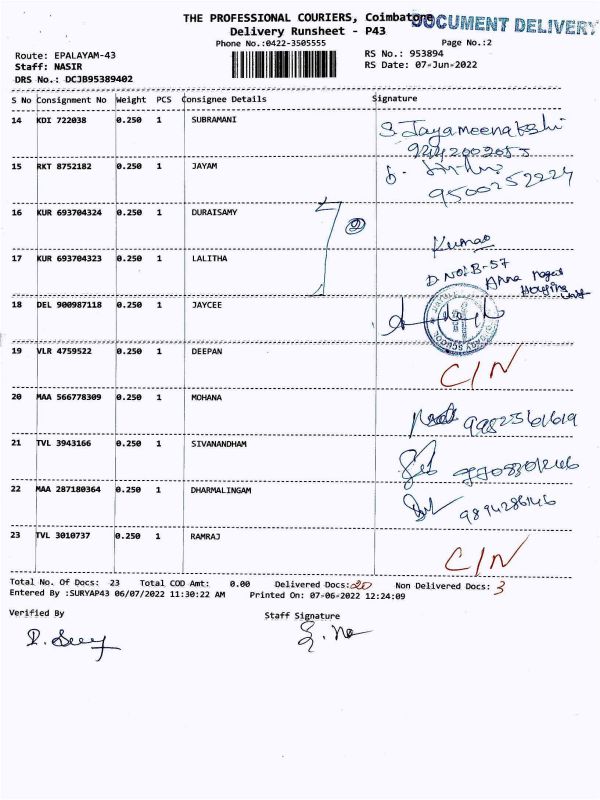 THE PROFESSIONAL COURIERS, Coimbatore
DOCUMENT DELIVERY
Delivery Runsheet - P43
Phone No.:0422-3505555
Page No.:2
Route: EPALAYAM-43
RS No.: 953894
Staff: NASIR
RS Date: 07-Jun-2022
DRS No.: DCJB95389402
S No Consignment No Weight PCS Consignee Details Signature
14 KDI 722038 0.250 1 SUBRAMANI S. Jayameenakshi
15 RKT 8752182 0.250 1 JAYAM 9500252224
16 KUR 693704324 0.250 1 DURAISAMY Kumar
17 KUR 693704323 0.250 1 LALITHA D.NO:B-57
Anna nagar
Housing unit
18 DEL 900987118 0.250 1 JAYCEE
19 VLR 4759522 0.250 1 DEEPAN C/N
20 MAA 566778309 0.250 1 MOHANA
21 TVL 3943166 0.250 1 SIVANANDHAM
22 MAA 287180364 0.250 1 DHARMALINGAM 9894286146
23 TVL 3010737 0.250 1 RAMRAJ C/N
Total No. Of Docs: 23 Total COD Amt: 0.00 Delivered Docs: 20 Non Delivered Docs: 3
Entered By :SURYAP43 06/07/2022 11:30:22 AM Printed On: 07-06-2022 12:24:09
Verified By
Staff Signature